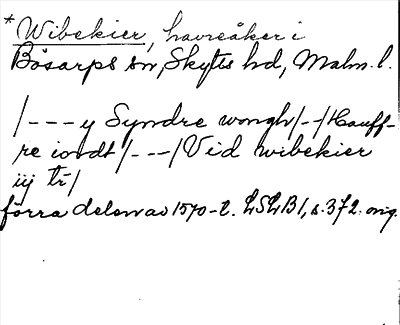 * Wibekier, havreåker i
Bösarps sn, Skytts hd, Malm. l.
/--- y Syndre wongh/--/Hauff-
re iordt/---/Vid wibekier
iij tr/
förra delen av 1570-t. LSLB1, s. 372. orig.